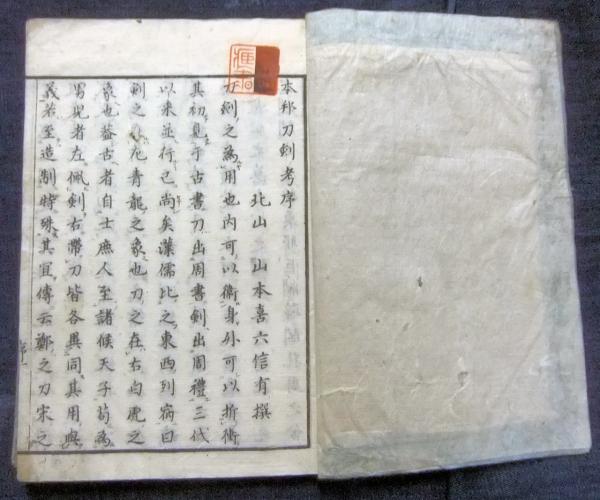 本邦刀劍考序
北山 山本喜六信有撰
刀劍之為用也内可以衛身外可以折衝
其初見于古書刀出周書劍出周禮三代
以来並行已尚矣漢儒比之東西列宿曰
劍之在左青龍之象也刀之在右白虎之
象也蓋古者自士庶人至諸侯天子苟為
男児者左佩劍右帶刀皆各異同其用與
義若至造制特殊其宜傳云鄭之刀宋之
序一